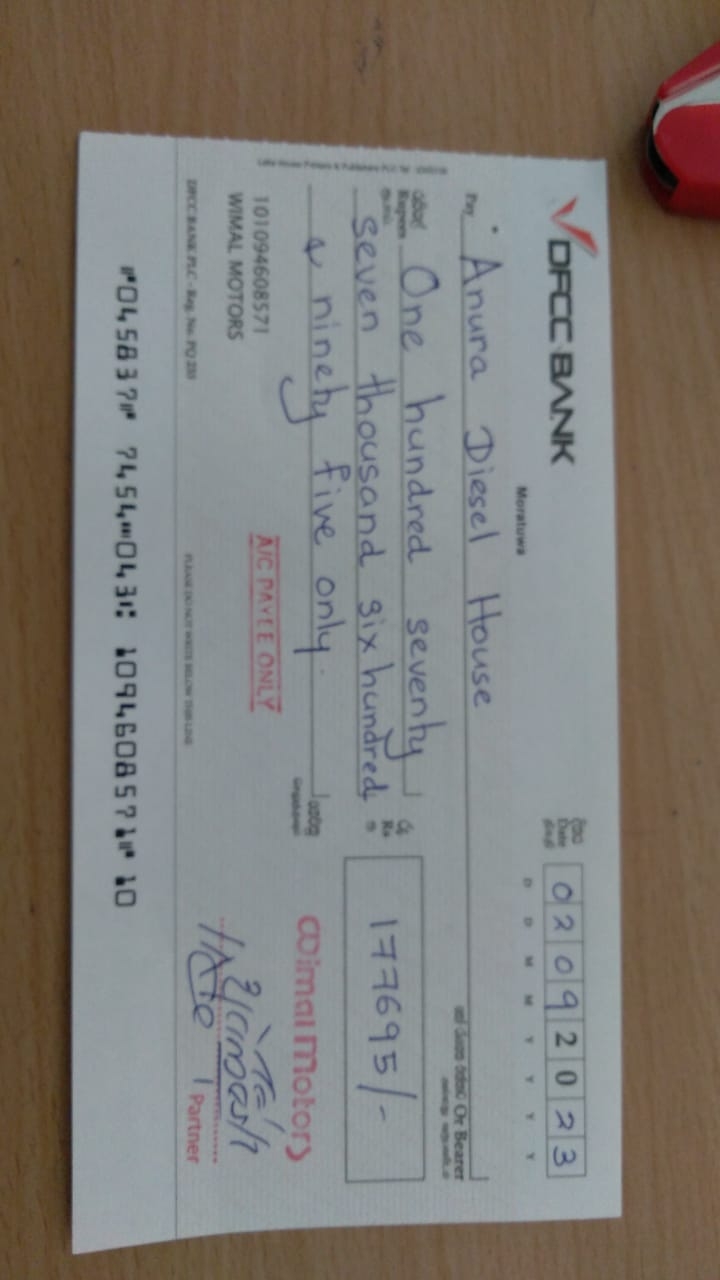 DFCC BANK
Moratuwa
දිනය
Date
திகதி
02092023
D D M M Y Y Y Y
Pay
Anura Diesel House
Or Bearer
රුපියල්
Rupees
ரூபாய்
One hundred seventy
seven thousand six hundred
& ninety five only.
රු
Rs
ரூ
177695/-
101094608571
WIMAL MOTORS
A/C PAYEE ONLY
Wimal Motors
Partner
DFCC BANK PLC - Reg. No. PQ 233
PLEASE DO NOT WRITE BELOW THIS LINE
⑈045837⑈ 7454⑉043⑆ 109460857⑈ 10